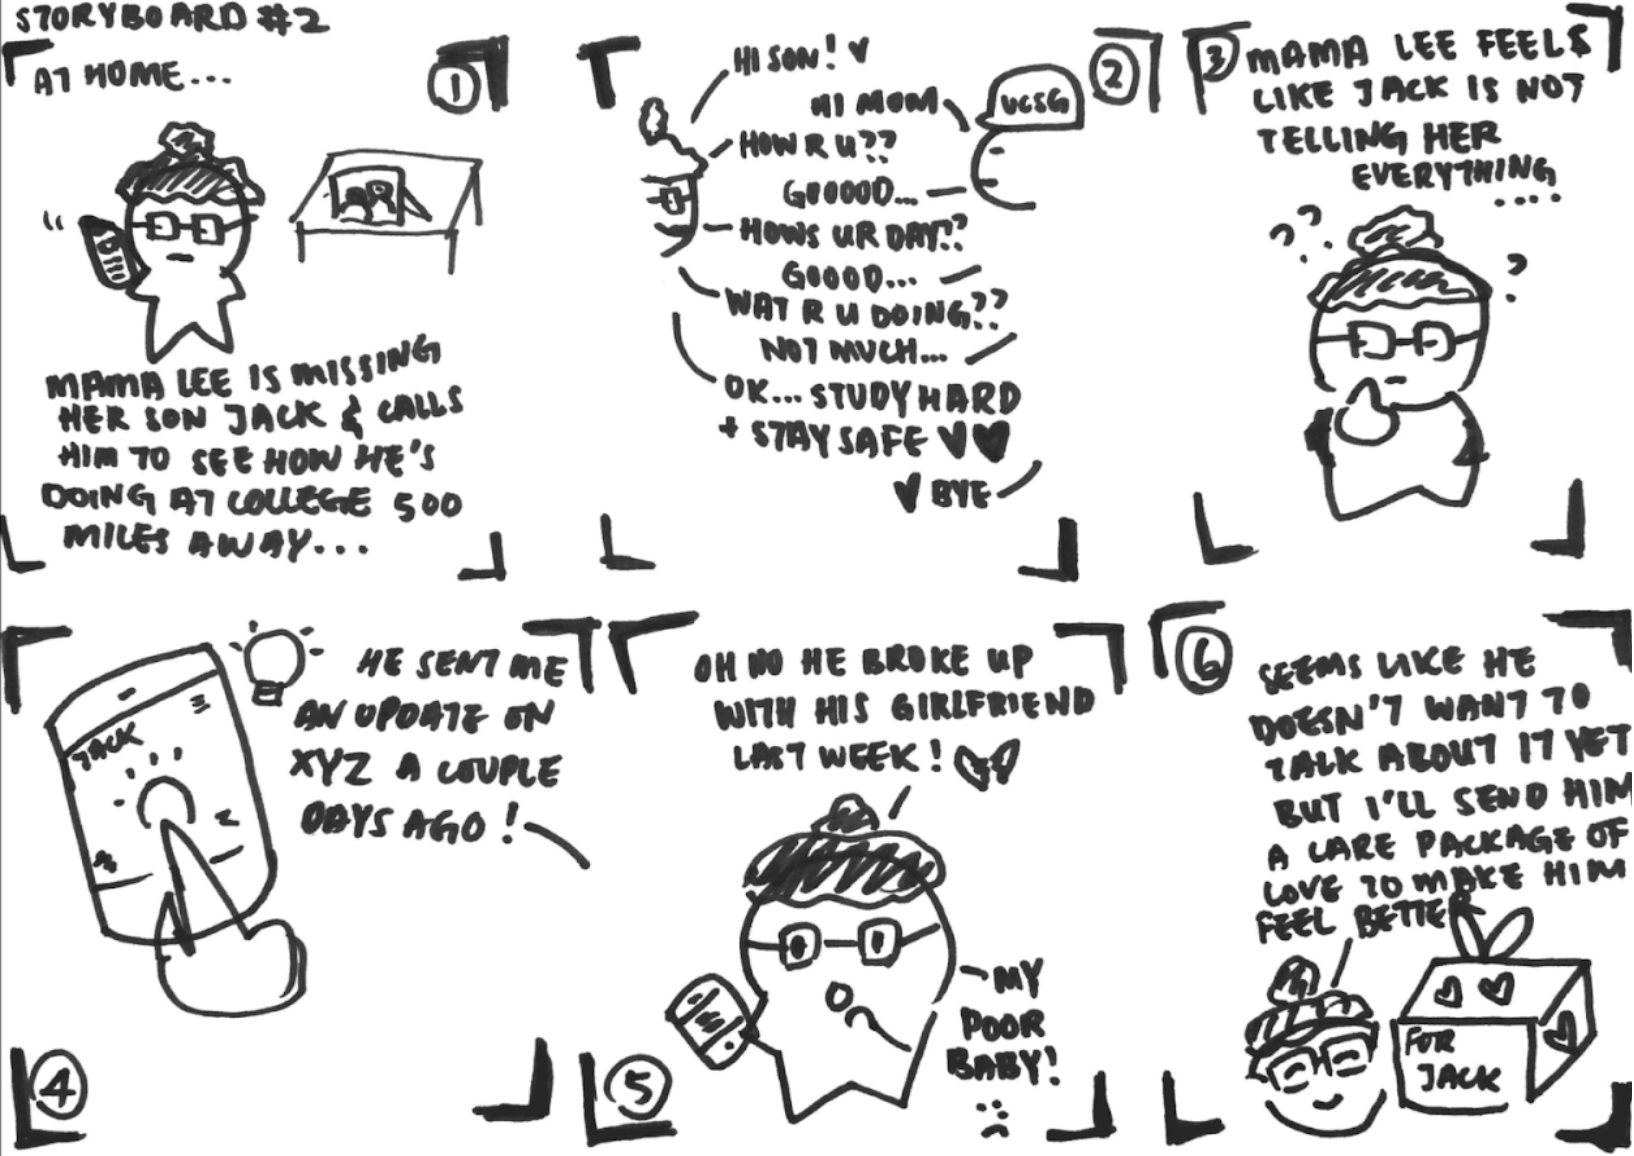 STORYBOARD #2
AT HOME...
1
MAMA LEE IS MISSING
HER SON JACK & CALLS
HIM TO SEE HOW HE'S
DOING AT COLLEGE 500
MILES AWAY...
2
HI SON! ♥
HI MOM
UCSG
HOW R U??
GOOOOD...
HOWS UR DAY??
GOOOD...
WAT R U DOING??
NOT MUCH...
OK... STUDY HARD
+ STAY SAFE ♥♥
♥ BYE
3
MAMA LEE FEELS
LIKE JACK IS NOT
TELLING HER
EVERYTHING
....
??
?
4
JACK
HE SENT ME
AN UPDATE ON
XYZ A COUPLE
DAYS AGO!
5
OH NO HE BROKE UP
WITH HIS GIRLFRIEND
LAST WEEK!
MY
POOR
BABY!
6
SEEMS LIKE HE
DOESN'T WANT TO
TALK ABOUT IT YET
BUT I'LL SEND HIM
A CARE PACKAGE OF
LOVE TO MAKE HIM
FEEL BETTER
FOR
JACK